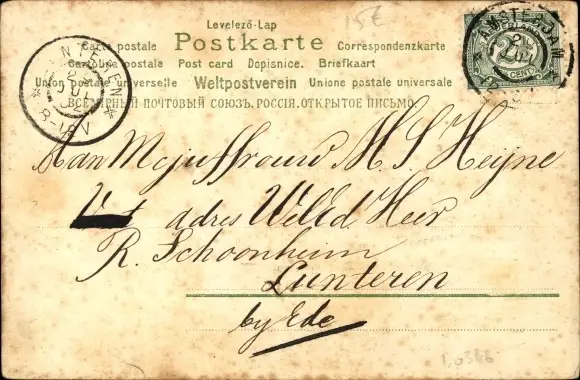 Levelező-Lap
15€
Carte postale Postkarte Correspondenzkarte
Cartolina postale Post card Dopisnice. Briefkaart
Union postale universelle Weltpostverein Unione postale universale
ВСЕМІРНЫЙ ПОЧТОВЫЙ СОЮЗЪ. РОССІЯ. ОТКРЫТОЕ ПИСЬМО.
LUNTEREN
8-10V
AMSTERDAM
CENT
Aan Mejuffrouw M. S. Heyne
adres WelEd. Heer
R. Schoonheim
Lunteren
by Ede